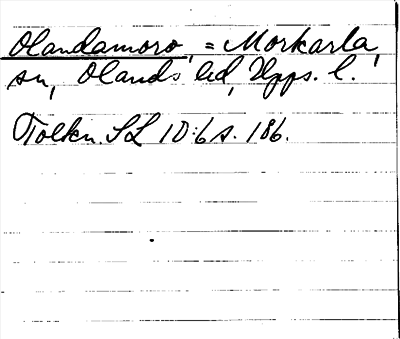 Olandamoro, = Morkarla,
sn, Olands hd, Upps. l.
Tolkn. SL 10:6 s. 186.